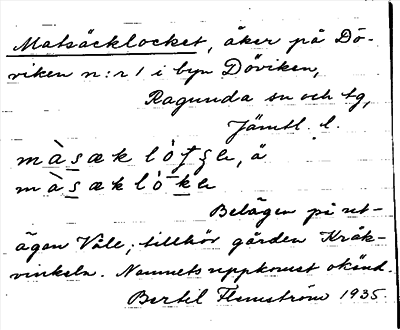 Matsäcklocket, åker på Dö-
viken n:r 1 i byn Döviken,
Ragunda sn och tg,
Jämtl. l.
màsæk lò
màsæk lòke
Belägen på ut-
ägan Våle; tillhör gården Kråk-
vinkeln. Namnets uppkomst okänd.
Bertil Flemström 1935.